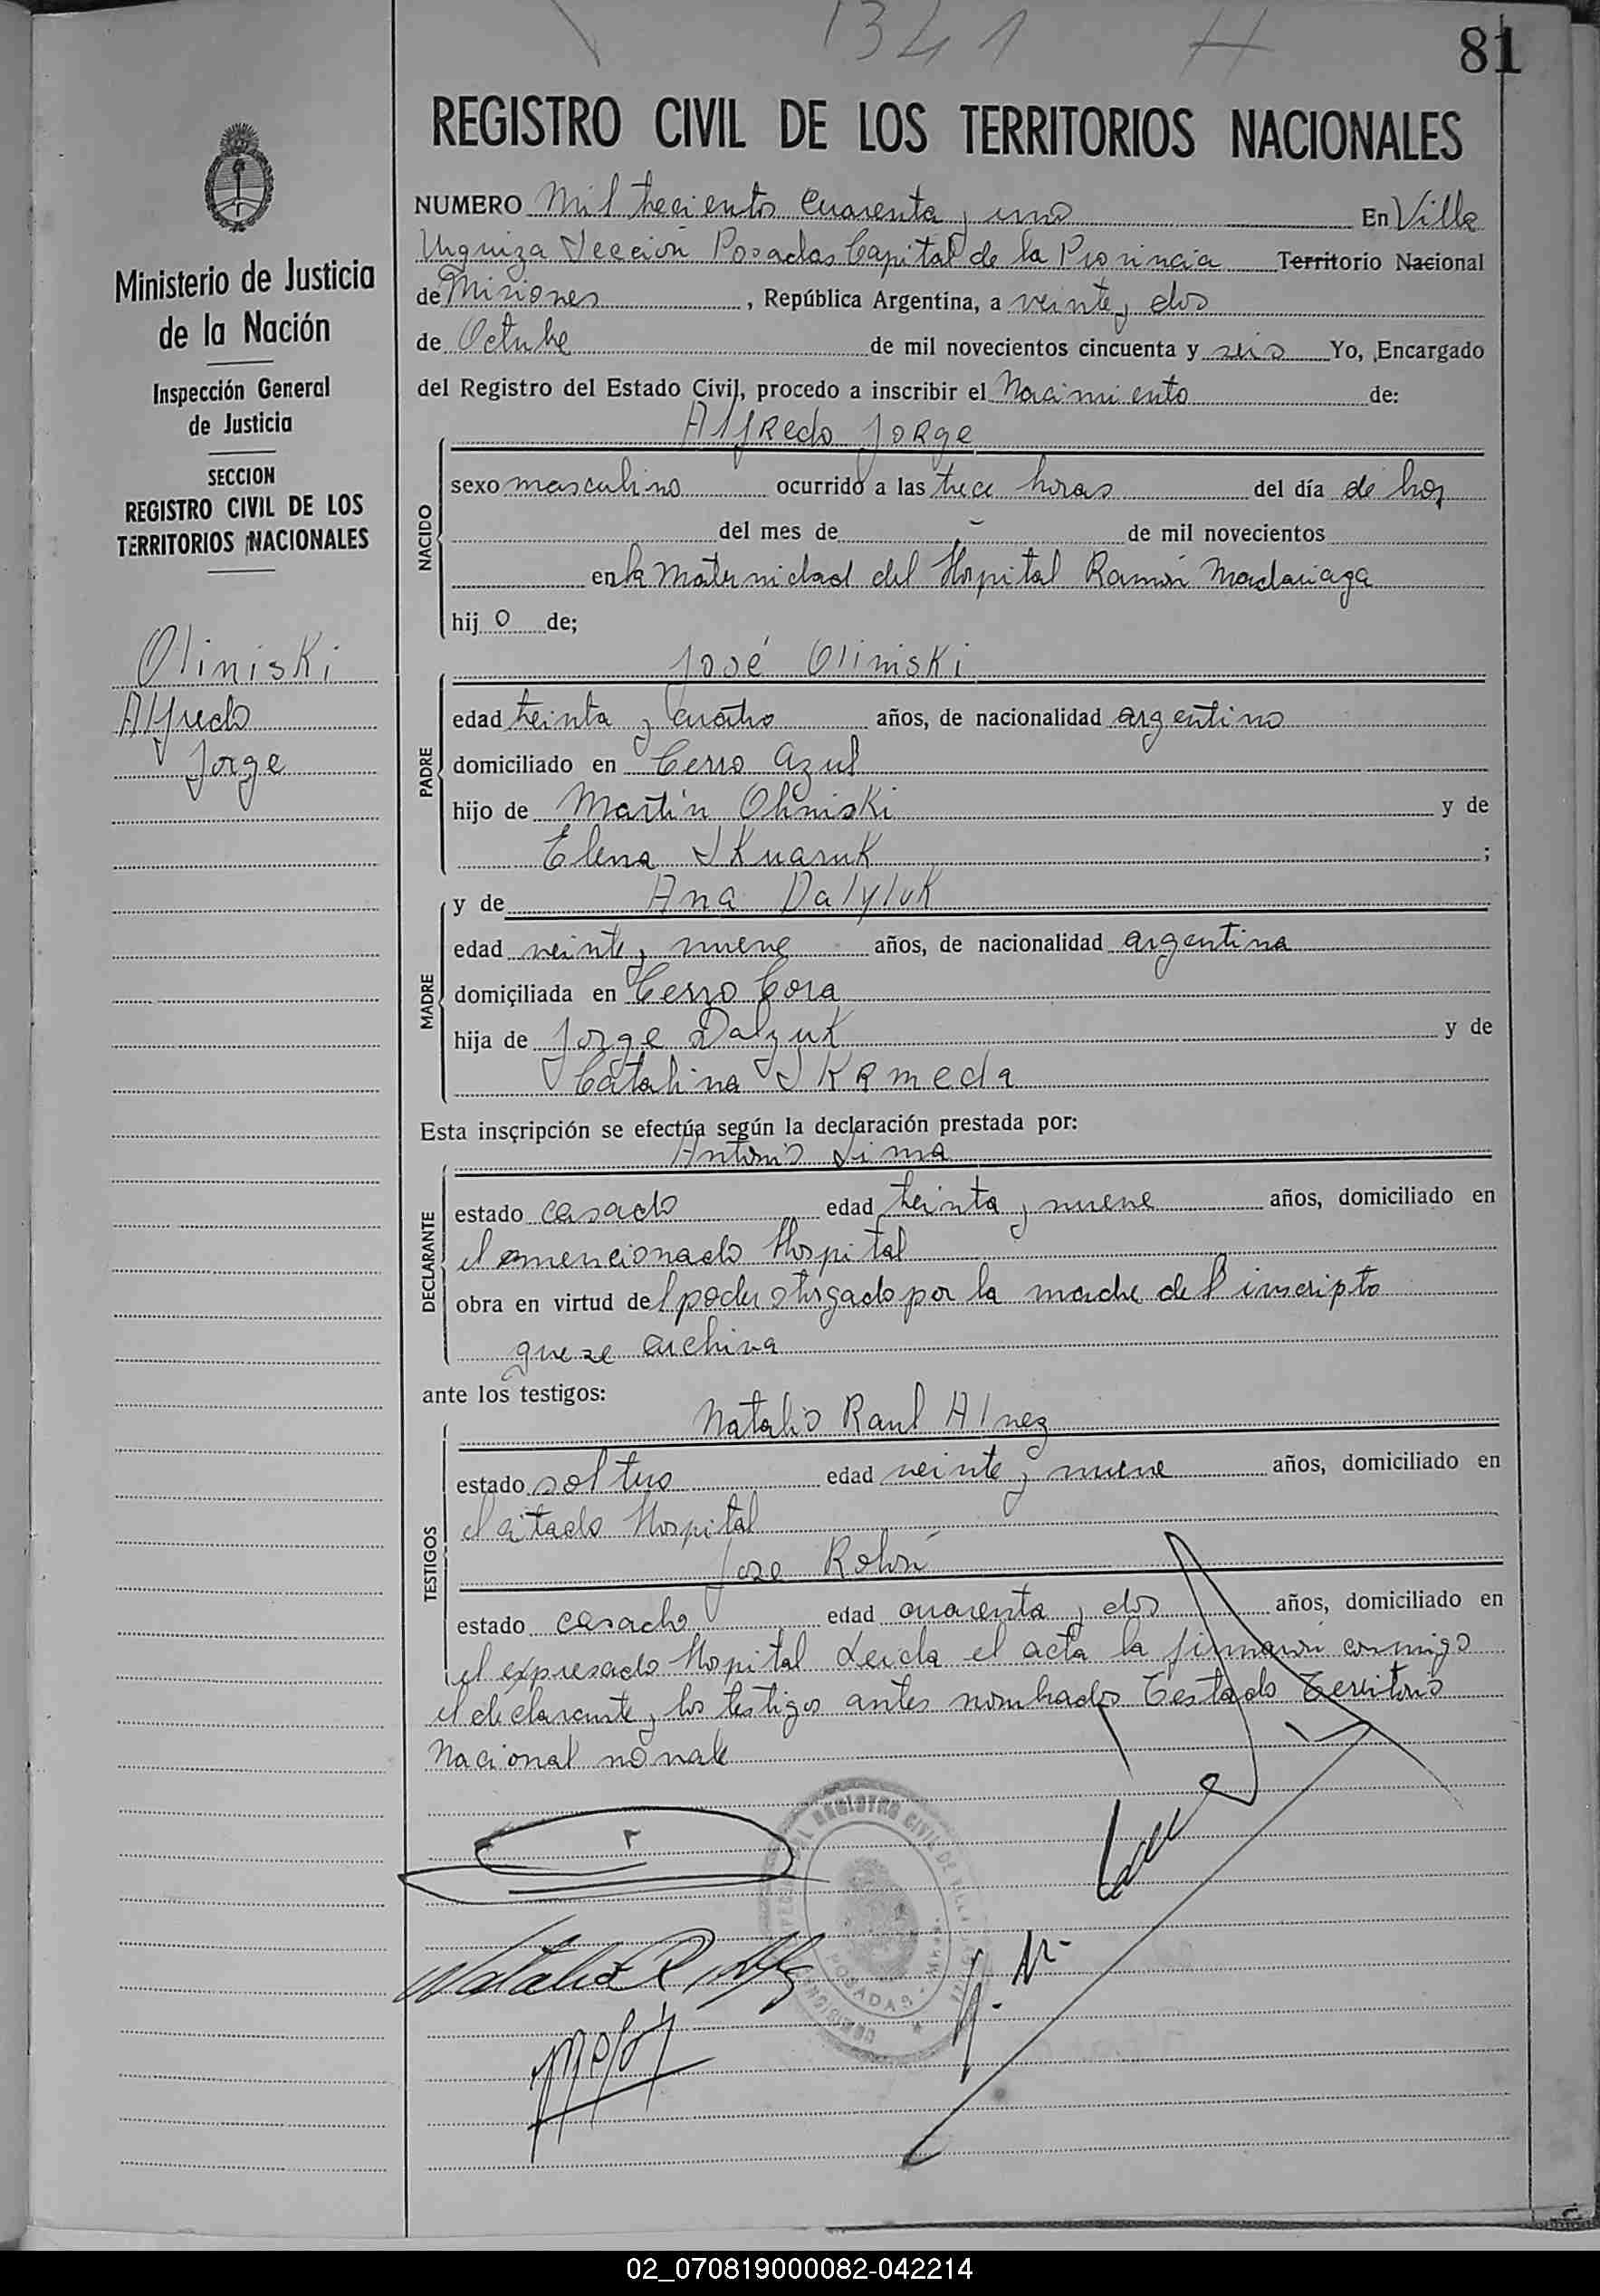 1341 H
81
REGISTRO CIVIL DE LOS TERRITORIOS NACIONALES
Ministerio de Justicia
de la Nación
Inspección General
de Justicia
SECCION
REGISTRO CIVIL DE LOS
TERRITORIOS NACIONALES
Oliniski
Alfredo
Jorge
NUMERO Mil trecientos Cuarenta y uno En Villa
Urquiza Sección Posadas Capital de la Provincia Territorio Nacional
de Misiones, República Argentina, a veinte y dos
de Octubre de mil novecientos cincuenta y seis Yo, Encargado
del Registro del Estado Civil, procedo a inscribir el Nacimiento de:
Alfredo Jorge
NACIDO
sexo masculino ocurrido a las trece horas del día de hoy
del mes de de mil novecientos
en la Maternidad del Hospital Ramón Madariaga
hij o de;
José Oliniski
PADRE
edad treinta y cuatro años, de nacionalidad argentino
domiciliado en Cerro Azul
hijo de Martín Oliniski y de
Elena Skuaruk;
y de Ana Dalyluk
MADRE
edad veinte y nueve años, de nacionalidad argentina
domiciliada en Cerro Cora
hija de Jorge Dalyuk y de
Catalina SKRmeda
Esta inscripción se efectúa según la declaración prestada por:
Antonio Lima
DECLARANTE
estado casado edad treinta y nueve años, domiciliado en
el mencionado Hospital
obra en virtud del poder otorgado por la madre del inscripto
que se archiva
ante los testigos:
Natalio Raul Alvez
TESTIGOS
estado soltero edad veinte y nueve años, domiciliado en
el citado Hospital
Jose Rolón
estado casado edad cuarenta y dos años, domiciliado en
el expresado Hospital Leida el acta la firmarón conmigo
el declarante y los testigos antes nombrados Testado Territorio
Nacional no vale
Natalio R Alvez
REGISTRO CIVIL DE
POSADAS
02_070819000082-042214